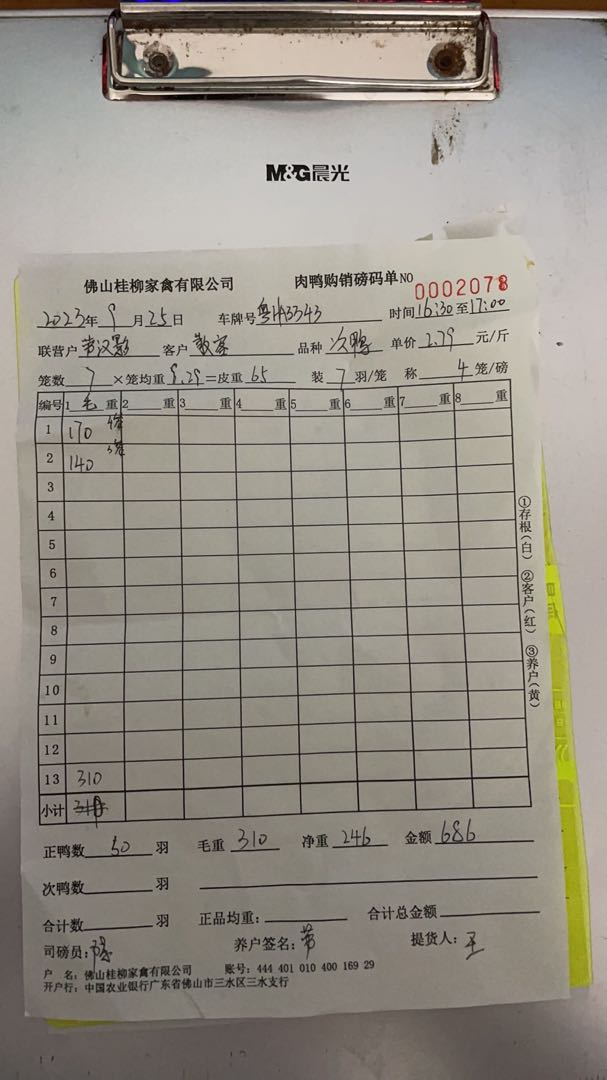 M&G晨光
佛山桂柳家禽有限公司 肉鸭购销磅码单NO 0002078
2023年 9 月 25 日 车牌号 3343 时间 16:30 至 17:00
联营户 客户 散客 品种 次鸭 单价 2.79 元/斤
笼数 7 ×笼均重 9.29 =皮重 65 装 7 羽/笼 称 4 笼/磅
编号 1 毛 重 2 重 3 重 4 重 5 重 6 重 7 重 8 重
1 170 4笼
2 140 3笼
3
4
5
6
7
8
9
10
11
12
13 310
小计
①存根(白) ②客户(红) ③养户(黄)
正鸭数 50 羽 毛重 310 净重 246 金额 686
次鸭数 羽
合计数 羽 正品均重: 合计总金额
司磅员: 养户签名: 提货人: 王
户 名: 佛山桂柳家禽有限公司 账号: 444 401 010 400 169 29
开户行: 中国农业银行广东省佛山市三水区三水支行